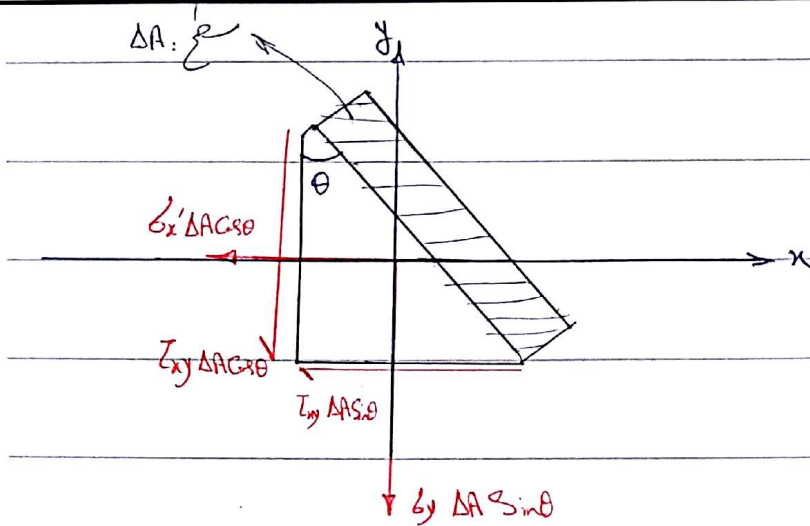 ΔA:
y
θ
σx' ΔA Cosθ
x
τxy ΔA Cosθ
τxy ΔA Sinθ
σy ΔA Sinθ